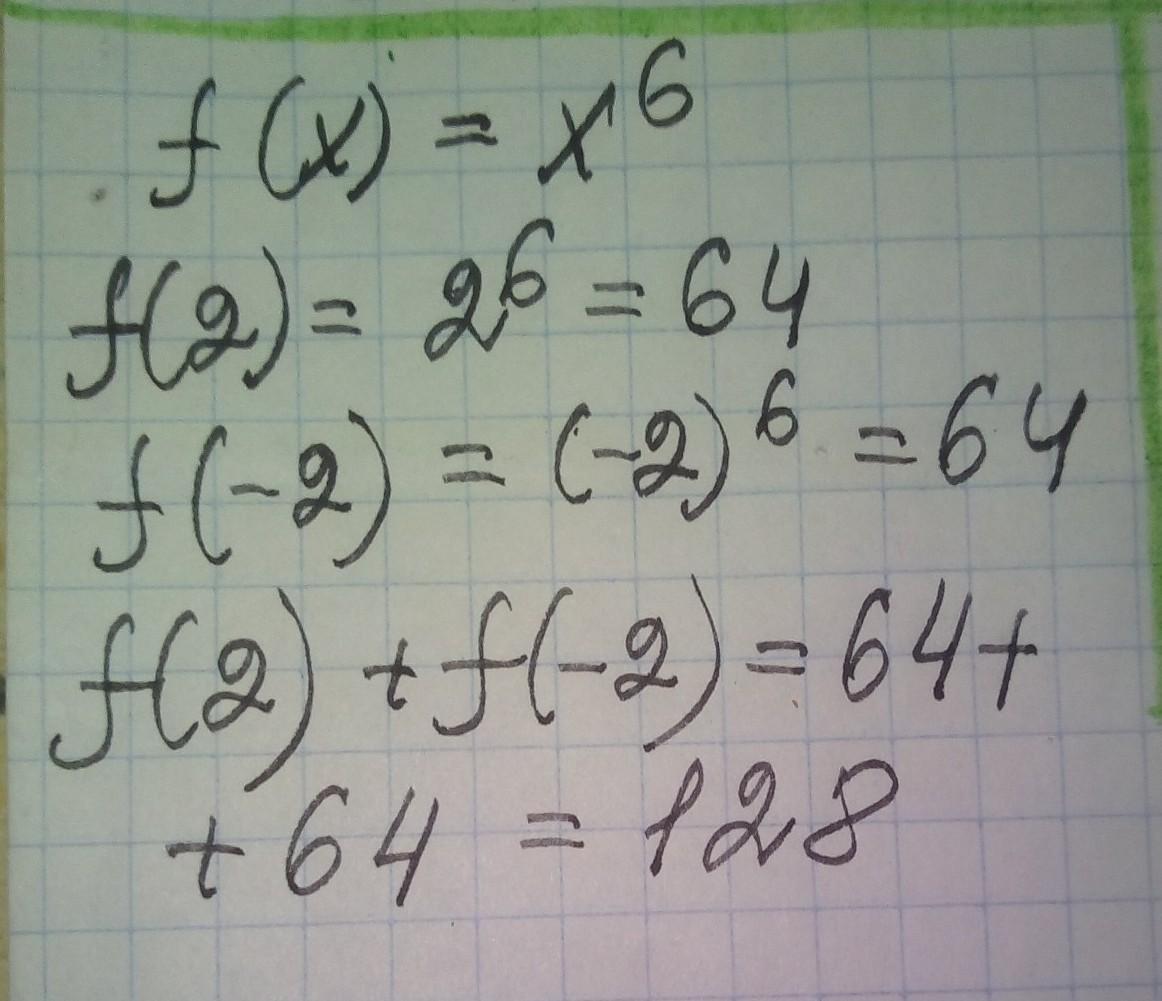 f(x) = x⁶
f(2) = 2⁶ = 64
f(-2) = (-2)⁶ = 64
f(2) + f(-2) = 64 +
+ 64 = 128